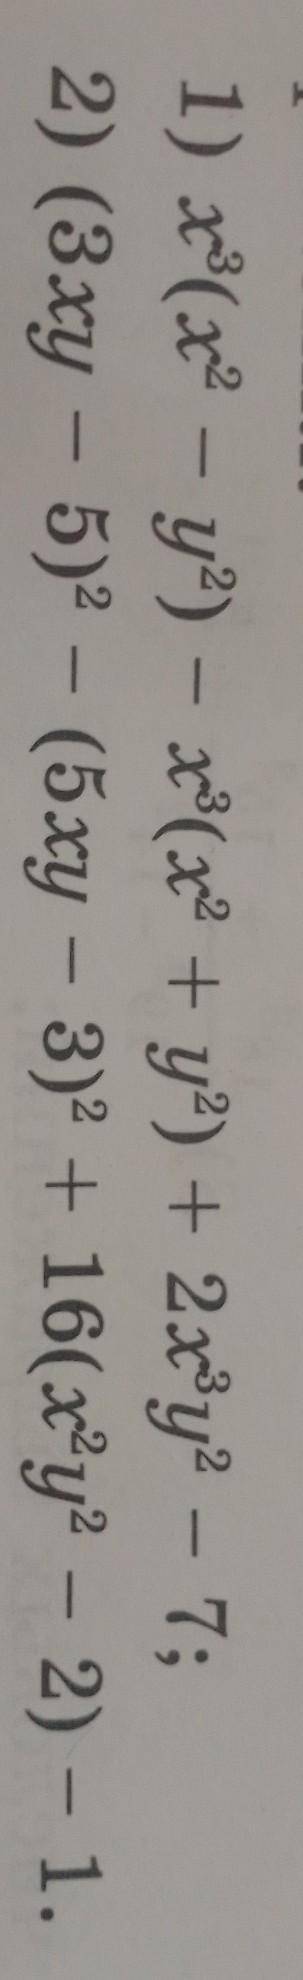 1) x³(x² − y²) − x³(x² + y²) + 2x³y² − 7;
2) (3xy − 5)² − (5xy − 3)² + 16(x²y² − 2) − 1.